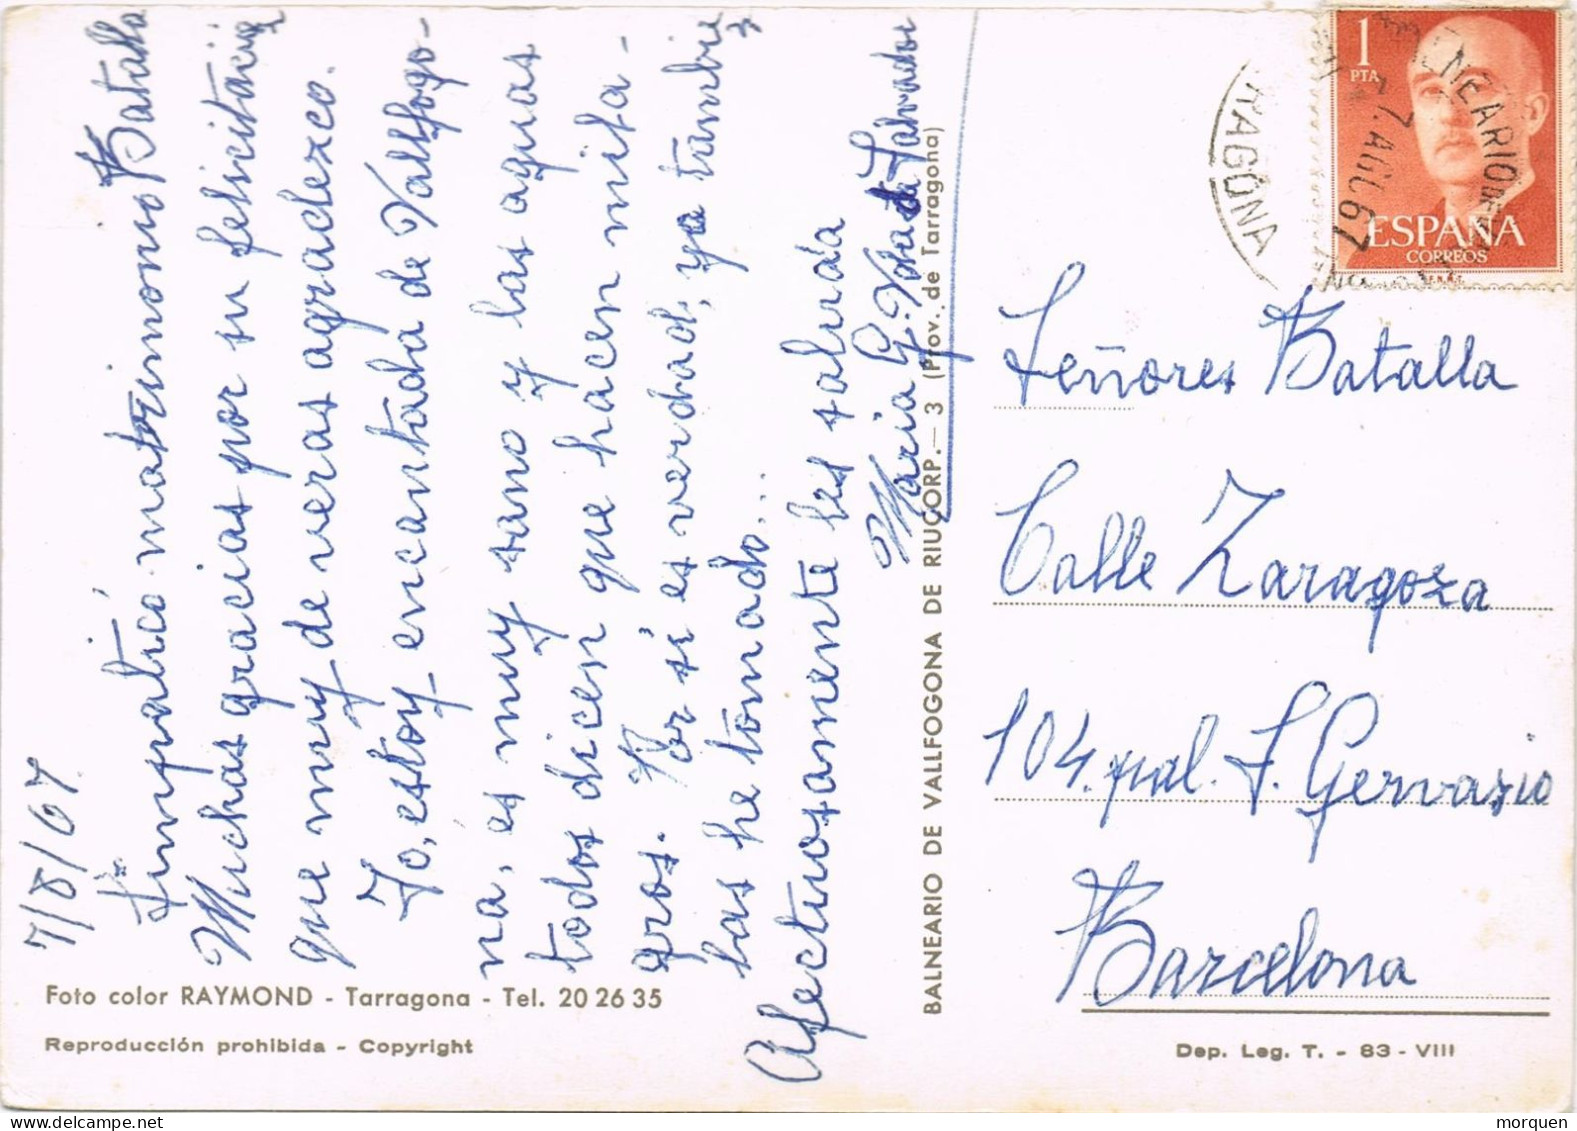 7/8/67
Simpático matrimonio Batalla
Muchas gracias por su felicitación
que muy de veras agradezco.
Yo, estoy encantada de Vallfogo-
na, es muy sano y las aguas
todos dicen que hacen mila-
gros. Por si es verdad, yo tambien
las he tomado...
Afectuosamente les saluda
Maria G. Vda de Salvador
Foto color RAYMOND - Tarragona - Tel. 20 26 35
Reproducción prohibida - Copyright
BALNEARIO DE VALLFOGONA DE RIUCORP.— 3 (Prov. de Tarragona)
1
PTA
ESPAÑA
CORREOS
BALNEARIO DE
7. AGO. 67
RAGONA
Señores Batalla
Calle Zaragoza
104. pral. S. Gervasio
Barcelona
Dep. Leg. T. - 83 - VIII
morquen